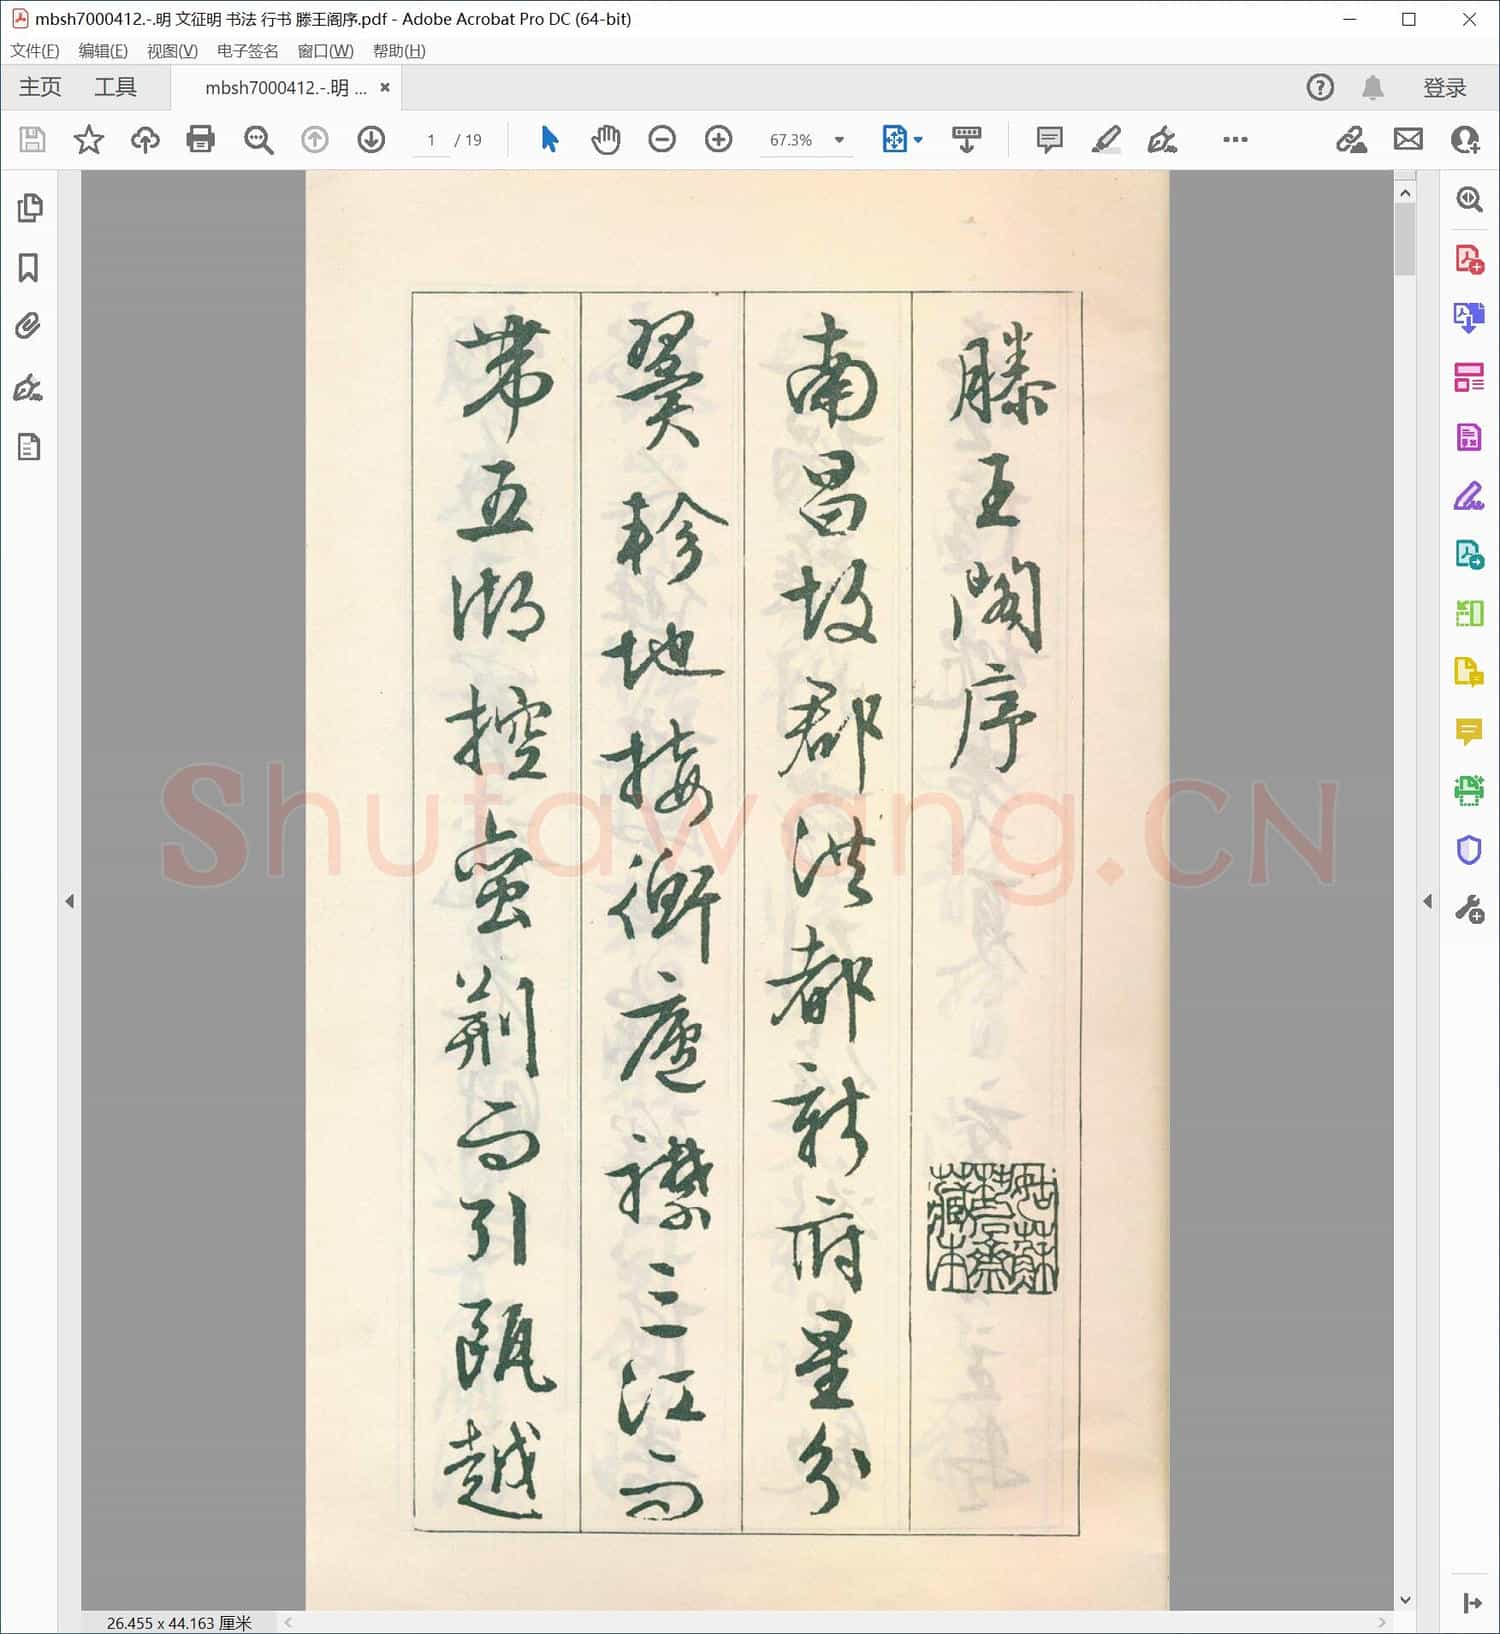 mbsh7000412.-.明 文征明 书法 行书 滕王阁序.pdf - Adobe Acrobat Pro DC (64-bit)
文件(F) 编辑(E) 视图(V) 电子签名 窗口(W) 帮助(H)
主页 工具 mbsh7000412.-.明 ... × 登录
1 / 19 67.3%
滕王閣序
南昌故郡洪都新府星分
翼軫地接衡廬襟三江而
帶五湖控蛮荊而引甌越
姑蘇
藏本
Shufawang.CN
26.455 x 44.163 厘米